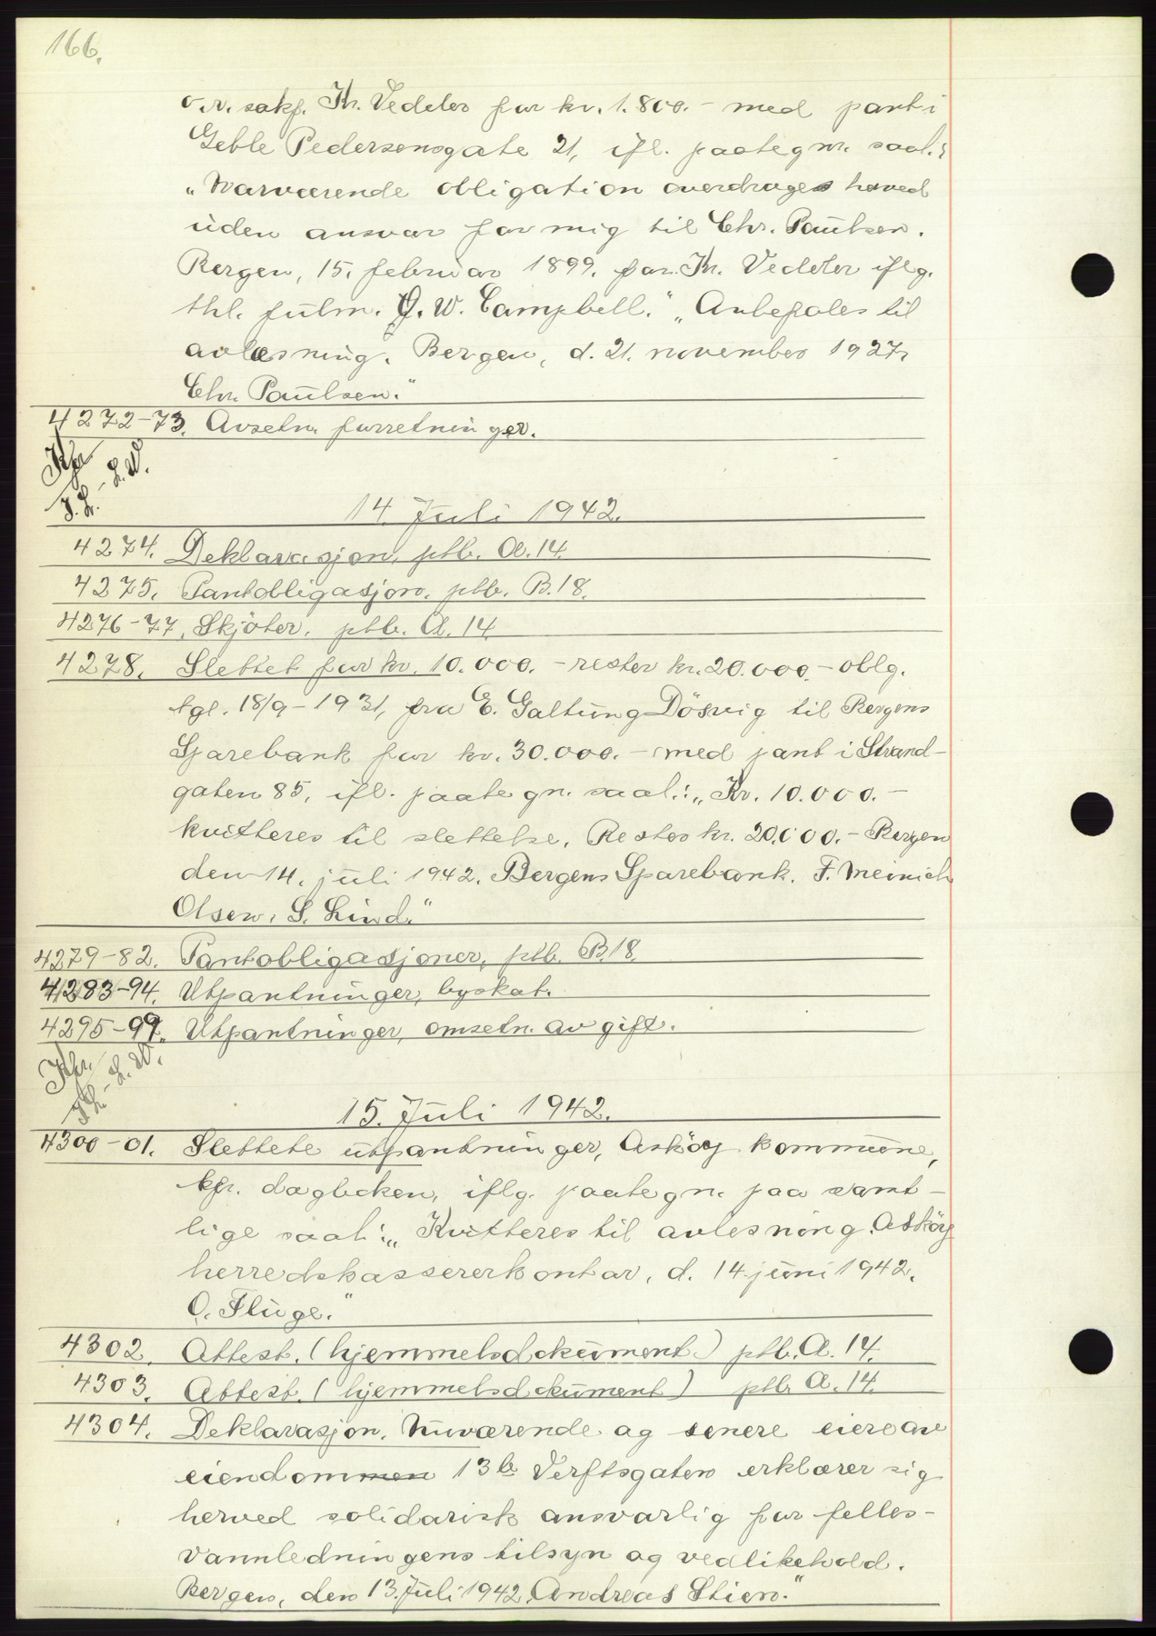 166.
o.r. sakf. Kr. Vedeler for kr. 1.800.- med pant i
Geble Pedersensgate 21, ifl. paategn. saal.:
"Nærværende obligation overdrages herved
uden ansvar for mig til Chr. Paulsen.
Bergen, 15. februar 1899. for Kr. Vedeler iflg.
thl. fulm. J. W. Campbell." "Anbefales til
avlæsning. Bergen, d. 21. november 1927.
Chr. Paulsen."
4272-73. Avsetn. forretninger.
14. Juli 1942.
4274. Deklarasjon, ptb. A. 14.
4275. Pantobligasjon. ptb. B. 18.
4276-77. Skjöter. ptb. A. 14
4278. Slettet for kr. 10.000.- rester kr. 20.000.- oblg.
tgl. 18/9-1931, fra E. Galtung Dösvig til Bergens
Sparebank for kr. 30.000.- med pant i Strand-
gaten 85, ifl. paategn. saal.: "Kr. 10.000.-
kvitteres til slettelse. Rester kr. 20.000.- Bergen
den 14. juli 1942. Bergens Sparebank. F. Meinich
Olsen. S. Lind."
4279-82. Pantobligasjoner, ptb. B. 18.
4283-94. Utpantninger, byskat.
4295-99. Utpantninger, omsetn. avgift.
15. Juli 1942.
4300-01. Slettete utpantninger, Asköy kommune,
kfr. dagboken, iflg. paategn. paa samt-
lige saal.: "Kvitteres til avlesning. Asköy
herredskassererkontor, d. 14 juni 1942.
O. Fluge."
4302. Attest. (hjemmelsdokument) ptb. A. 14.
4303. Attest. (hjemmelsdokument) ptb. A. 14.
4304. Deklarasjon. Nuværende og senere eiere av
eiendommen 13b Verftsgaten erklærer sig
herved solidarisk ansvarlig for felles-
vannledningens tilsyn og vedlikehold.
Bergen, den 13. Juli 1942. Andreas Stien."